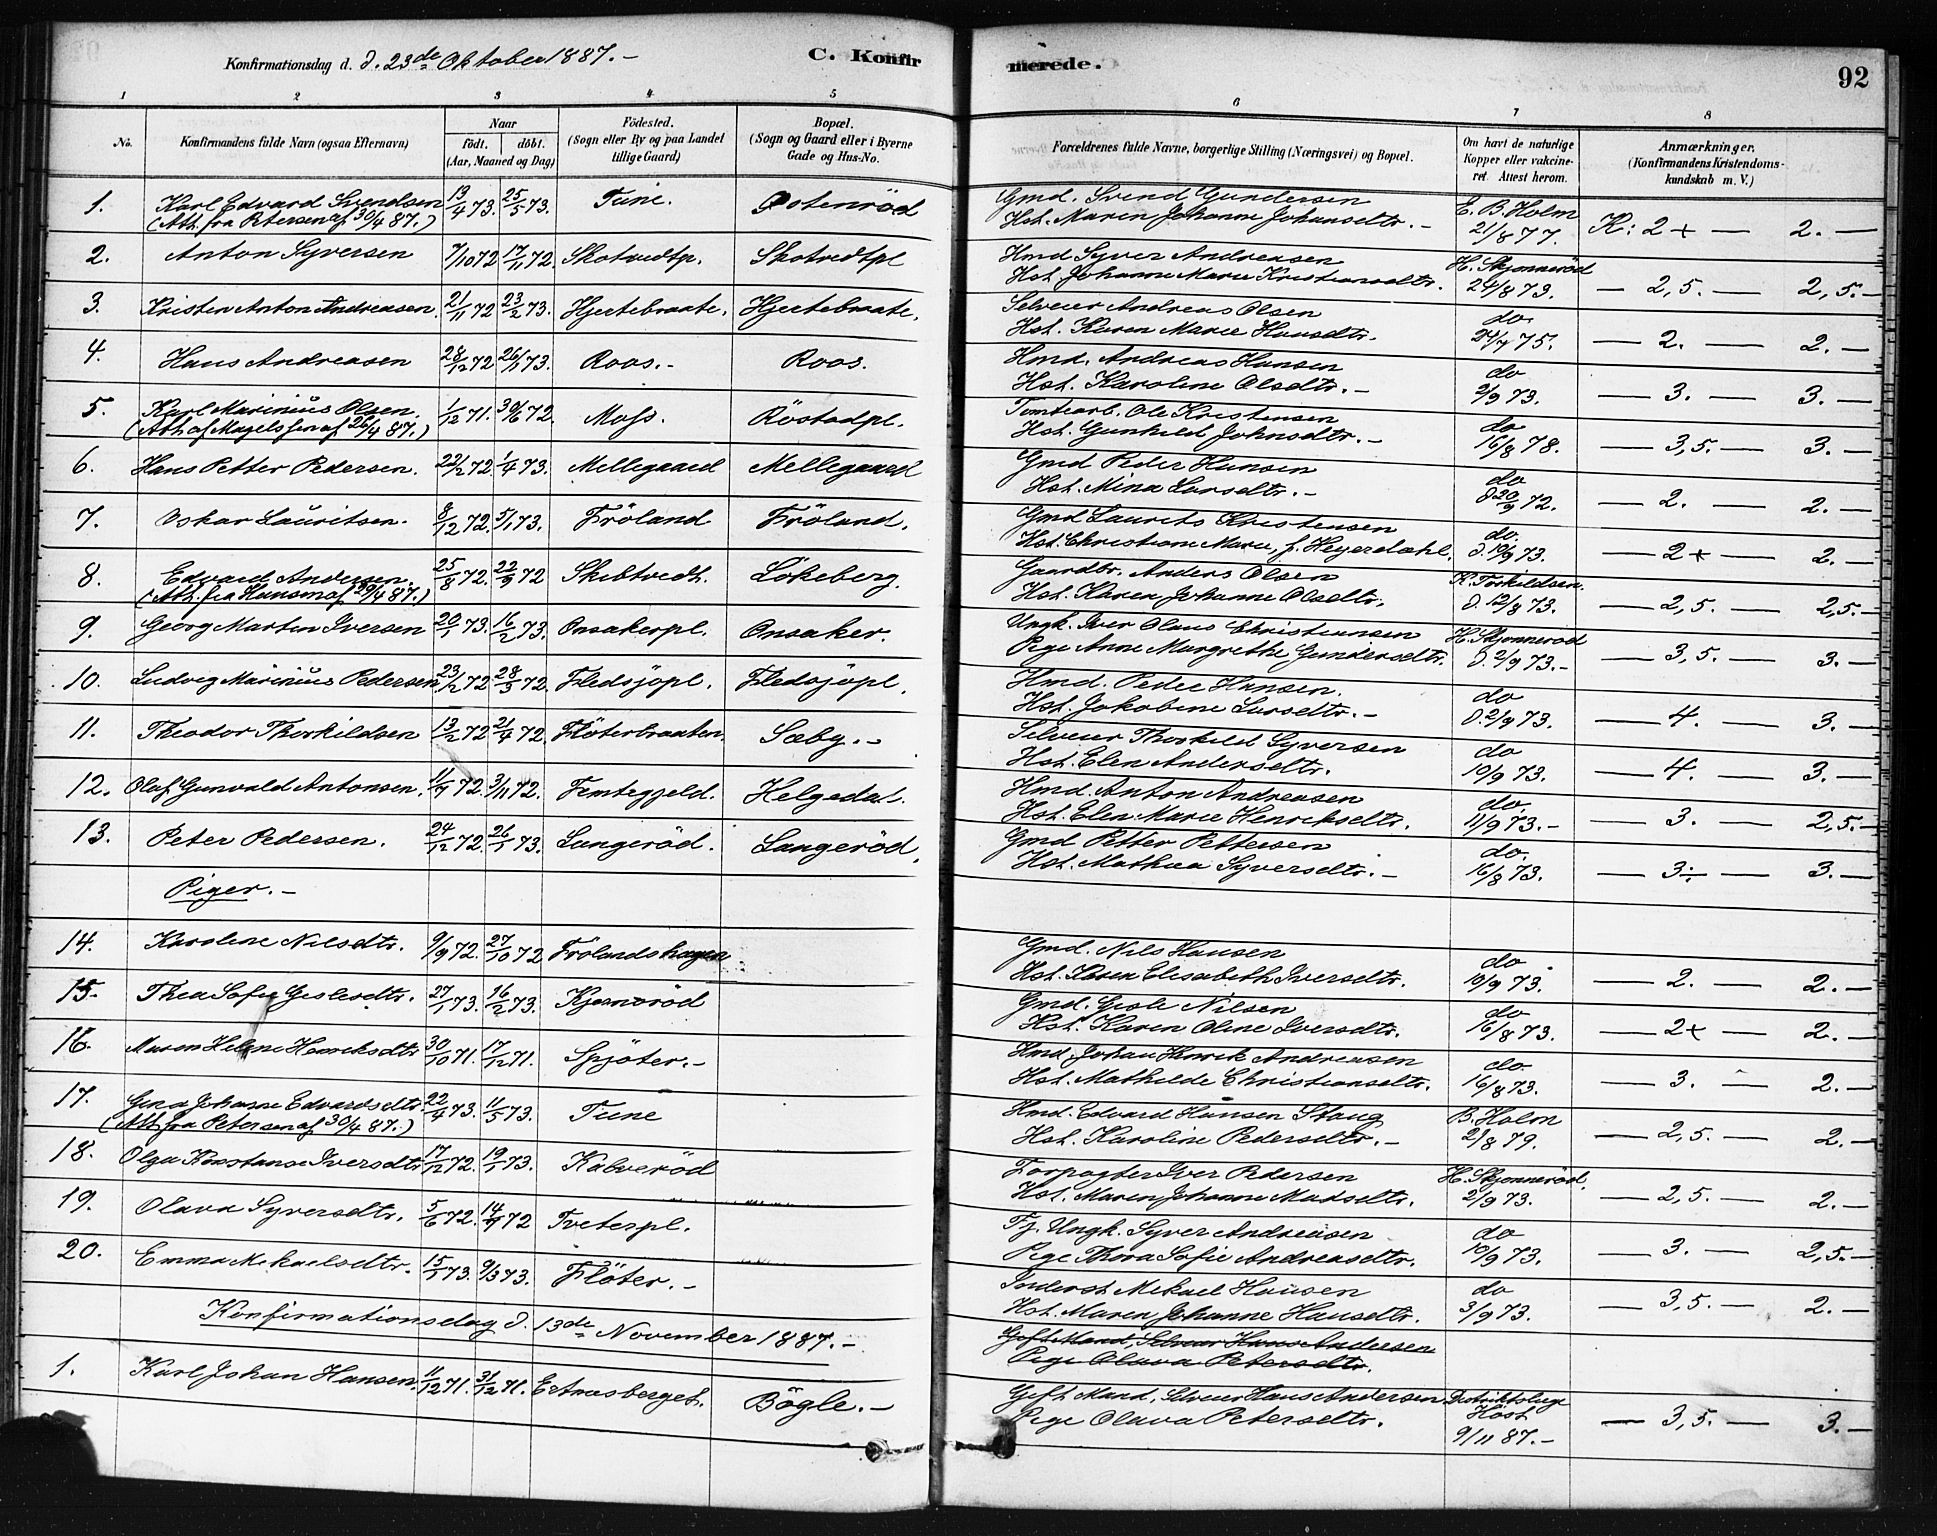 Konfirmationsdag d. d. 23de Oktober 1887.-
C. Konfirmerede.
92
1 2 3 4 5 6 7 8
No. | Konfirmandens fulde Navn (ogsaa Efternavn) | Naar født. døbt. (Aar, Maaned og Dag) | Fødested. (Sogn eller By og paa Landet tillige Gaard) | Bopæl. (Sogn og Gaard eller i Byerne Gade og Hus-No. | Forældrenes fulde Navne, borgerlige Stilling (Næringsvei) og Bopæl. | Om havt de naturlige Kopper eller vakcineret. Attest herom. | Anmærkninger. (Konfirmandens Kristendomskundskab m. V.)
1. Karl Edvard Svendsen 13/4 73. 25/5 73. Tune. Ostenröd Gmd. Svend Gundersen E. B. Holm K: 2+ — 2. —
(Att. fra Petersen af 30/4 87.) Hst. Maren Johanne Johansdtr. - 21/8 77.
2. Anton Syversen 7/10 72 17/11 72. Skotvedtp. Skotvedtpl Hmd Syver Andreasen H. Skjonneröd — 2,5. — 2,5. —
Hst. Johanne Marie Kristiansdtr. 24/8 73.
3. Kristen Anton Andreasen. 21/11 72 23/2 73. Hjertebraate. Hjertebraate. Selveier Andreas Olsen do — 2. — 2. —
Hst. Karen Marie Hansdtr. 24/7 75.
4. Hans Andreasen 28/12 72 26/1 73. Roos. - Roos. Hmd. Andreas Hansen do — 3. — 3. —
Hst. Karoline Olsdtr. - 2/9 73.
5. Karl Marinius Olsen. 1/12 71. 30/6 72. Moss. Röstadpl. Tomtearb. Ole Kristensen do — 3,5. — 3. —
(Att. af Magelssen af 26/4 87.) Hst. Gunhild Johnsdtr. - 16/8 78.
6. Hans Petter Pedersen. 22/12 72 1/4 73. Mellegaard Mellegaard Gmd Peder Hansen do — 2. — 2. —
Hst. Mina Larsdtr. - d 20/9 72.
7. Oskar Lauritsen. 8/12 72. 5/1 73. Fröland Fröland. Gmd Laurits Kristensen do. — 2+ — 2. —
Hst. Christiane Marie, f. Heyerdahl. d. 19/9 73.
8. Edvard Andersen. 25/8 72. 22/9 72 Skibtvedt. Lökeberg. Gaardbr. Anders Olsen K. Torkildsen. — 2,5. — 2,5. —
(Att. fra Hansen af 29/4 87.) Hst. Karen Johanne Olsdtr. d. 12/8 73.
9. Georg Martin Iversen 20/1 73. 16/2 73. Onsakerpl. Onsaker. Ungk. Iver Olaus Christiansen H. Skjonneröd — 3,5. — 3. —
Pige Anne Margrethe Gundersdtr. d. 2/9 73. -
10. Ludvig Marinius Pedersen 23/2 72 28/3 72. Fledsjöpl. Fledsjöpl. Hmd. Peder Hansen. do — 4. — 3. —
Hst. Jakobine Larsdtr. - d. 2/9 73.
11. Theodor Thorkildsen 13/2 72 21/4 72. Flöterbraaten. Sæby. - Selveier Thorkild Syversen do — 4. — 3. —
Hst. Elen Andersdtr. 10/9 73.
12. Olaf Gunvald Antonsen. 11/9 72. 3/11 72. Femtegjeld. Helgedal. Hmd. Anton Andreasen do. — 3. — 2,5. —
Hst. Elen Marie Henriksdtr. 11/9 73. -
13. Peter Pedersen. 24/12 72. 26/1 73. Langeröd. Langeröd. Gmd Petter Pettersen do. — 3÷ — 3. —
Hst. Mathea Syversdtr. - 16/8 73.
Piger. -
14. Karoline Nilsdtr. 9/9 72. 27/10 72 Frölandshagen Gmd. Nils Hansen do — 2. — 2. —
Hst. Karen Elisabeth Iversdtr. 10/9 73.
15. Thea Sofie Gislesdtr. 27/1 73. 16/2 73. Kjærneröd Gmd. Gisle Nilsen do — 2+ — 2. —
Hst. Karen Oline Iversdtr. 16/8 73.
16. Maren Helene Henriksdtr 30/10 71. 17/12 71. Spjöter. - Hmd Johan Henrik Andreasen do — 3. — 2. —
Hst. Mathilde Christiansdtr. 16/8 73.
17. Gina Johanne Edvardsdtr 22/4 73. 11/5 73. Tune Hmd. Edvard Hansen B. Holm — 2,5. — 2. —
(Att. fra Petersen af 30/4 87.) Hst. Karoline Pedersdtr. - 21/8 79.
18. Olga Konstanse Iversdtr 17/12 72. 19/1 73. Kalveröd Forpagter Iver Pedersen H. Skjonneröd. — 2,5. — 2. —
Hst. Maren Johanne Madsdtr. 2/9 73.
19. Olava Syversdtr. 5/6 72. 14/7 72 Tveterpl. Fj. Ungk. Syver Andreasen do — 3. — 2,5. —
Pige Thora Sofie Andreasdtr. 10/9 73.
20. Emma Mikaelsdtr. 15/1 73. 9/3 73. Flöter. - Inderst Mikael Hansen do — 3,5. — 2. —
Hst. Maren Johanne Hansdtr. 3/9 73.
Konfirmationsdag d. 13de November 1887. -
Gift Mand, Selveier Hans Andersen
Pige Olava Petersdtr.
1. Karl Johan Hansen. 11/12 71. 31/12 71. Bögle. - Gift Mand, Selveier Hans Andersen Distriktslæge — 3,5. — 3. —
Pige Olava Petersdtr. Höst
9/11 87. -